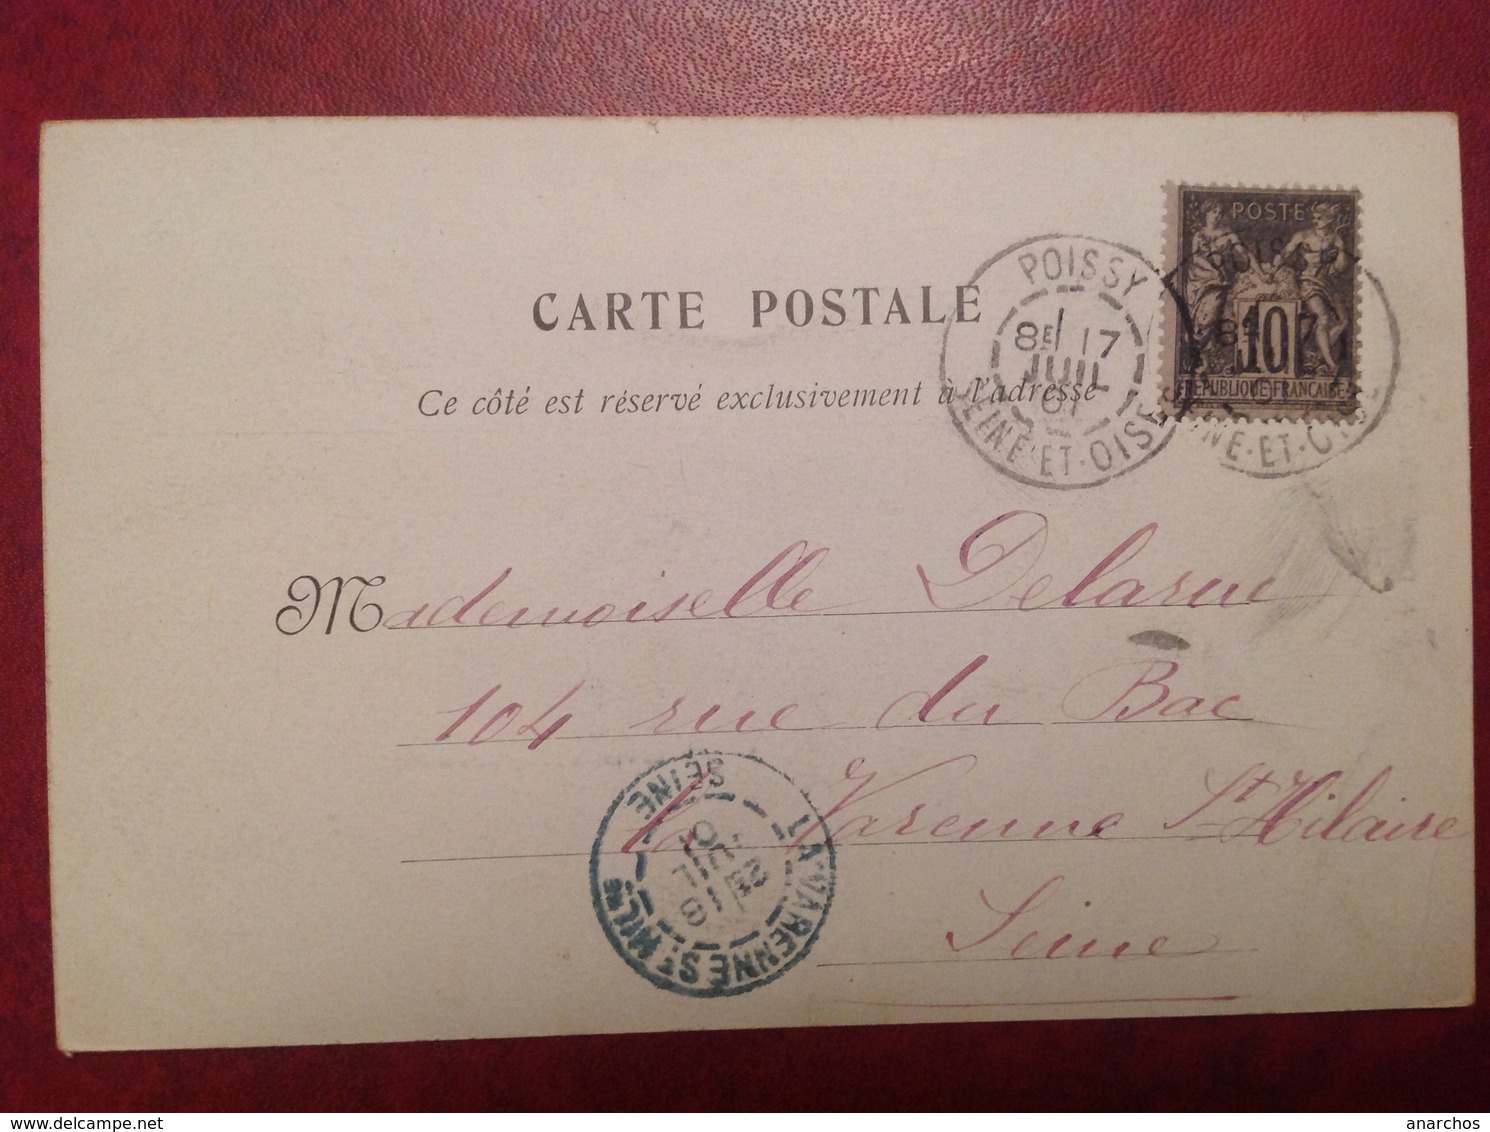 POSTE
10
RÉPUBLIQUE FRANÇAISE
POISSY
8E 17
JUIL
01
SEINE-ET-OISE
CARTE POSTALE
Ce côté est réservé exclusivement à l'adresse
Mademoiselle Delarue
104 rue du Bac
La Varenne St Hilaire
Seine
LA VARENNE ST HILRE
2E 18
JUIL
01
SEINE
anarchos